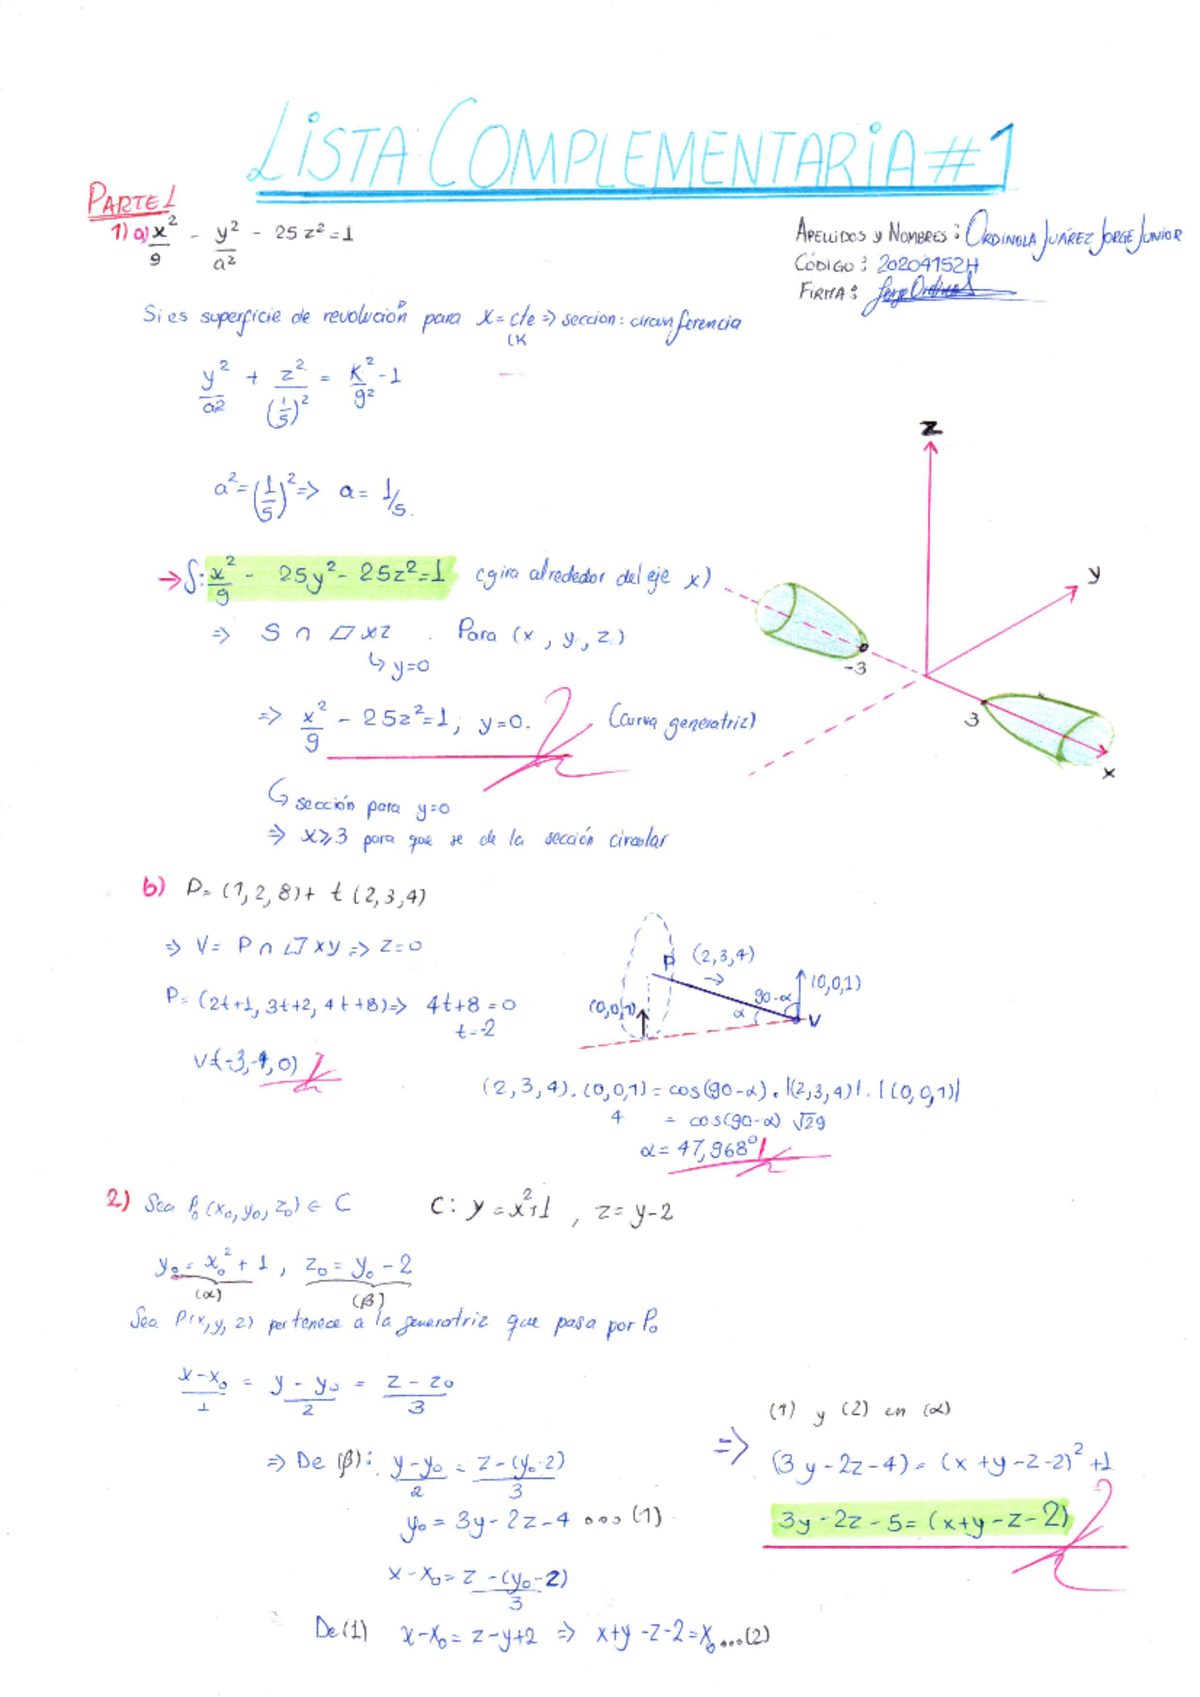 LISTA COMPLEMENTARIA #1
PARTE 1
APELLIDOS y NOMBRES : ORDINOLA JUÁREZ JORGE JUNIOR
CÓDIGO : 20204152H
FIRMA :
1) a) x²/9 - y²/a² - 25z² = 1
Si es superficie de revolución para x = cte ⇒ seccion: circunferencia
(K
y²/a² + z²/(1/5)² = K²/9² - 1
a² = (1/5)² ⇒ a = 1/5.
→ S: x²/9 - 25y² - 25z² = 1 (gira alrededor del eje x)
⇒ S ∩ ▱ xz . Para (x, y, z)
↳ y=0
⇒ x²/9 - 25z² = 1; y=0. (curva generatriz)
↳ sección para y=0
⇒ x⩾3 para que se de la sección circular
z
y
-3
3
x
b) P = (1,2,8) + t (2,3,4)
⇒ V = P ∩ ▱ xy ⇒ z=0
P = (2t+1, 3t+2, 4t+8) ⇒ 4t+8 = 0
t = -2
V = (-3,-4,0)
P (2,3,4)
→
(0,0,1)
90-α
(0,0,1)
α
V
(2,3,4).(0,0,1) = cos(90-α).|(2,3,4)|.|(0,0,1)|
4 = cos(90-α) √29
α = 47,968°
2) Sea P₀(x₀,y₀,z₀) ∈ C C: y = x²+1 , z = y-2
y₀ = x₀² + 1 , z₀ = y₀ - 2
(α) (β)
Sea P(x,y,z) pertenece a la generatriz que pasa por P₀
x-x₀/1 = y-y₀/2 = z-z₀/3
⇒ De (β): y-y₀/2 = z-(y₀-2)/3
y₀ = 3y-2z-4 ... (1)
x-x₀ = z-(y₀-2)/3
De (1) x-x₀ = z-y+2 ⇒ x+y-z-2 = x₀ ...(2)
(1) y (2) en (α)
⇒ (3y-2z-4) = (x+y-z-2)² +1
3y-2z-5 = (x+y-z-2)